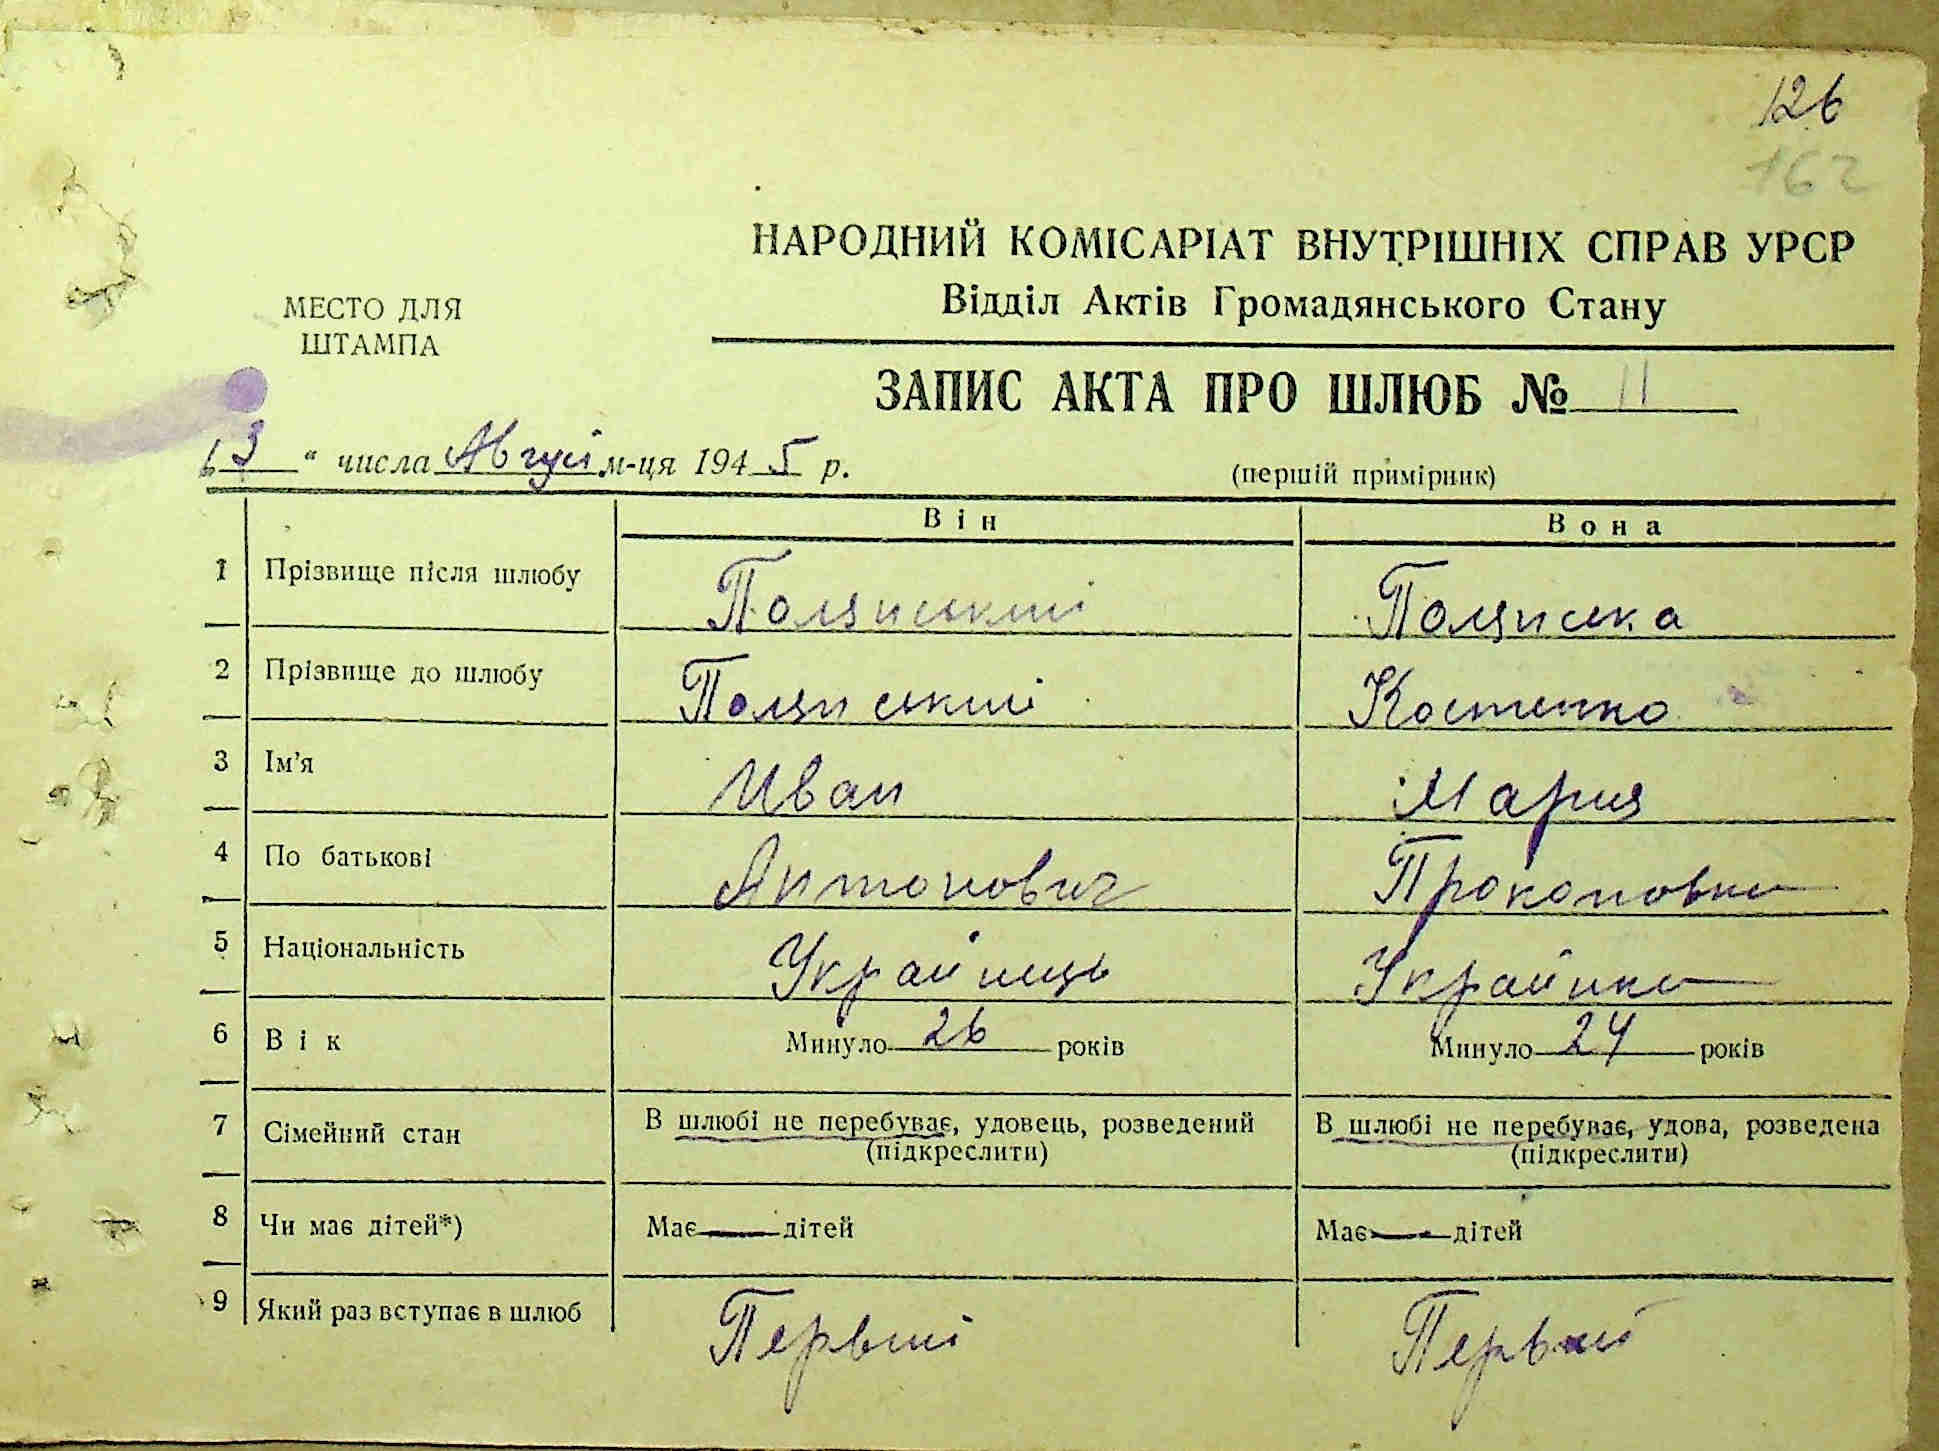 126
162
НАРОДНИЙ КОМІСАРІАТ ВНУТРІШНІХ СПРАВ УРСР
Відділ Актів Громадянського Стану
МЕСТО ДЛЯ
ШТАМПА
ЗАПИС АКТА ПРО ШЛЮБ № 11
„3“ числа Август м-ця 1945 р.
(першій примірник)
Він Вона
1 Прізвище після шлюбу
2 Прізвище до шлюбу Костенко
3 Ім'я Иван Мария
4 По батькові Антонович Прокоповна
5 Національність Украйнець Украйнка
6 Вік Минуло 26 років Минуло 24 років
7 Сімейний стан В шлюбі не перебуває, удовець, розведений В шлюбі не перебуває, удова, розведена
(підкреслити) (підкреслити)
8 Чи має дітей*) Має — дітей Має — дітей
9 Який раз вступає в шлюб Первий Первий